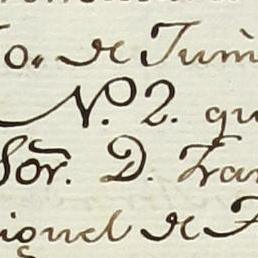 o„ de Tuin
N.º 2. qu
Sor. D. Fran
iguel de F